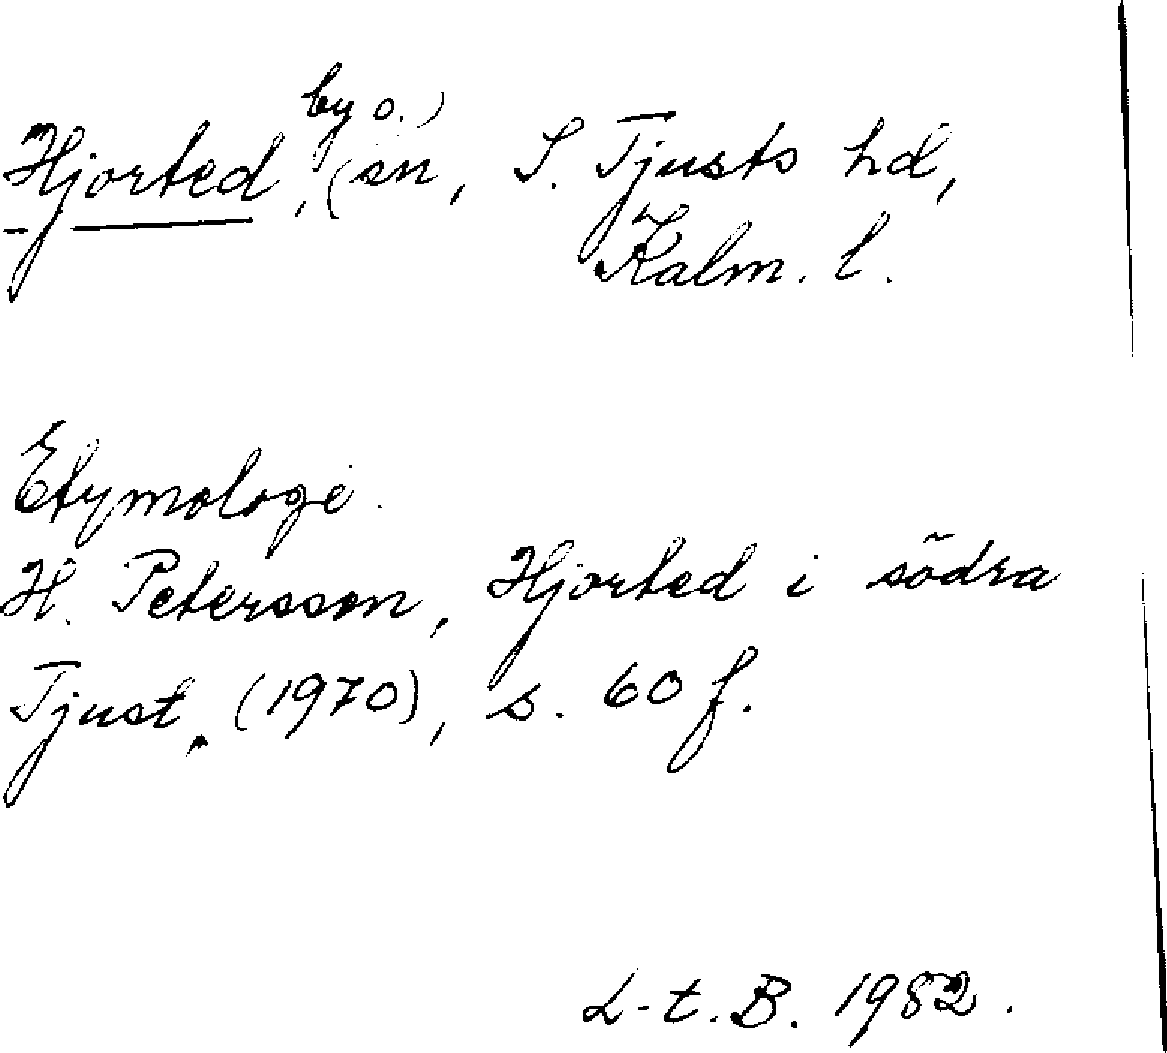 Hjorted, (by o.) sn, S. Tjusts hd,
Kalm. l.
Etymologi.
H. Petersson, Hjorted i södra
Tjust, (1970), s. 60 f.
L-t. B. 1982.